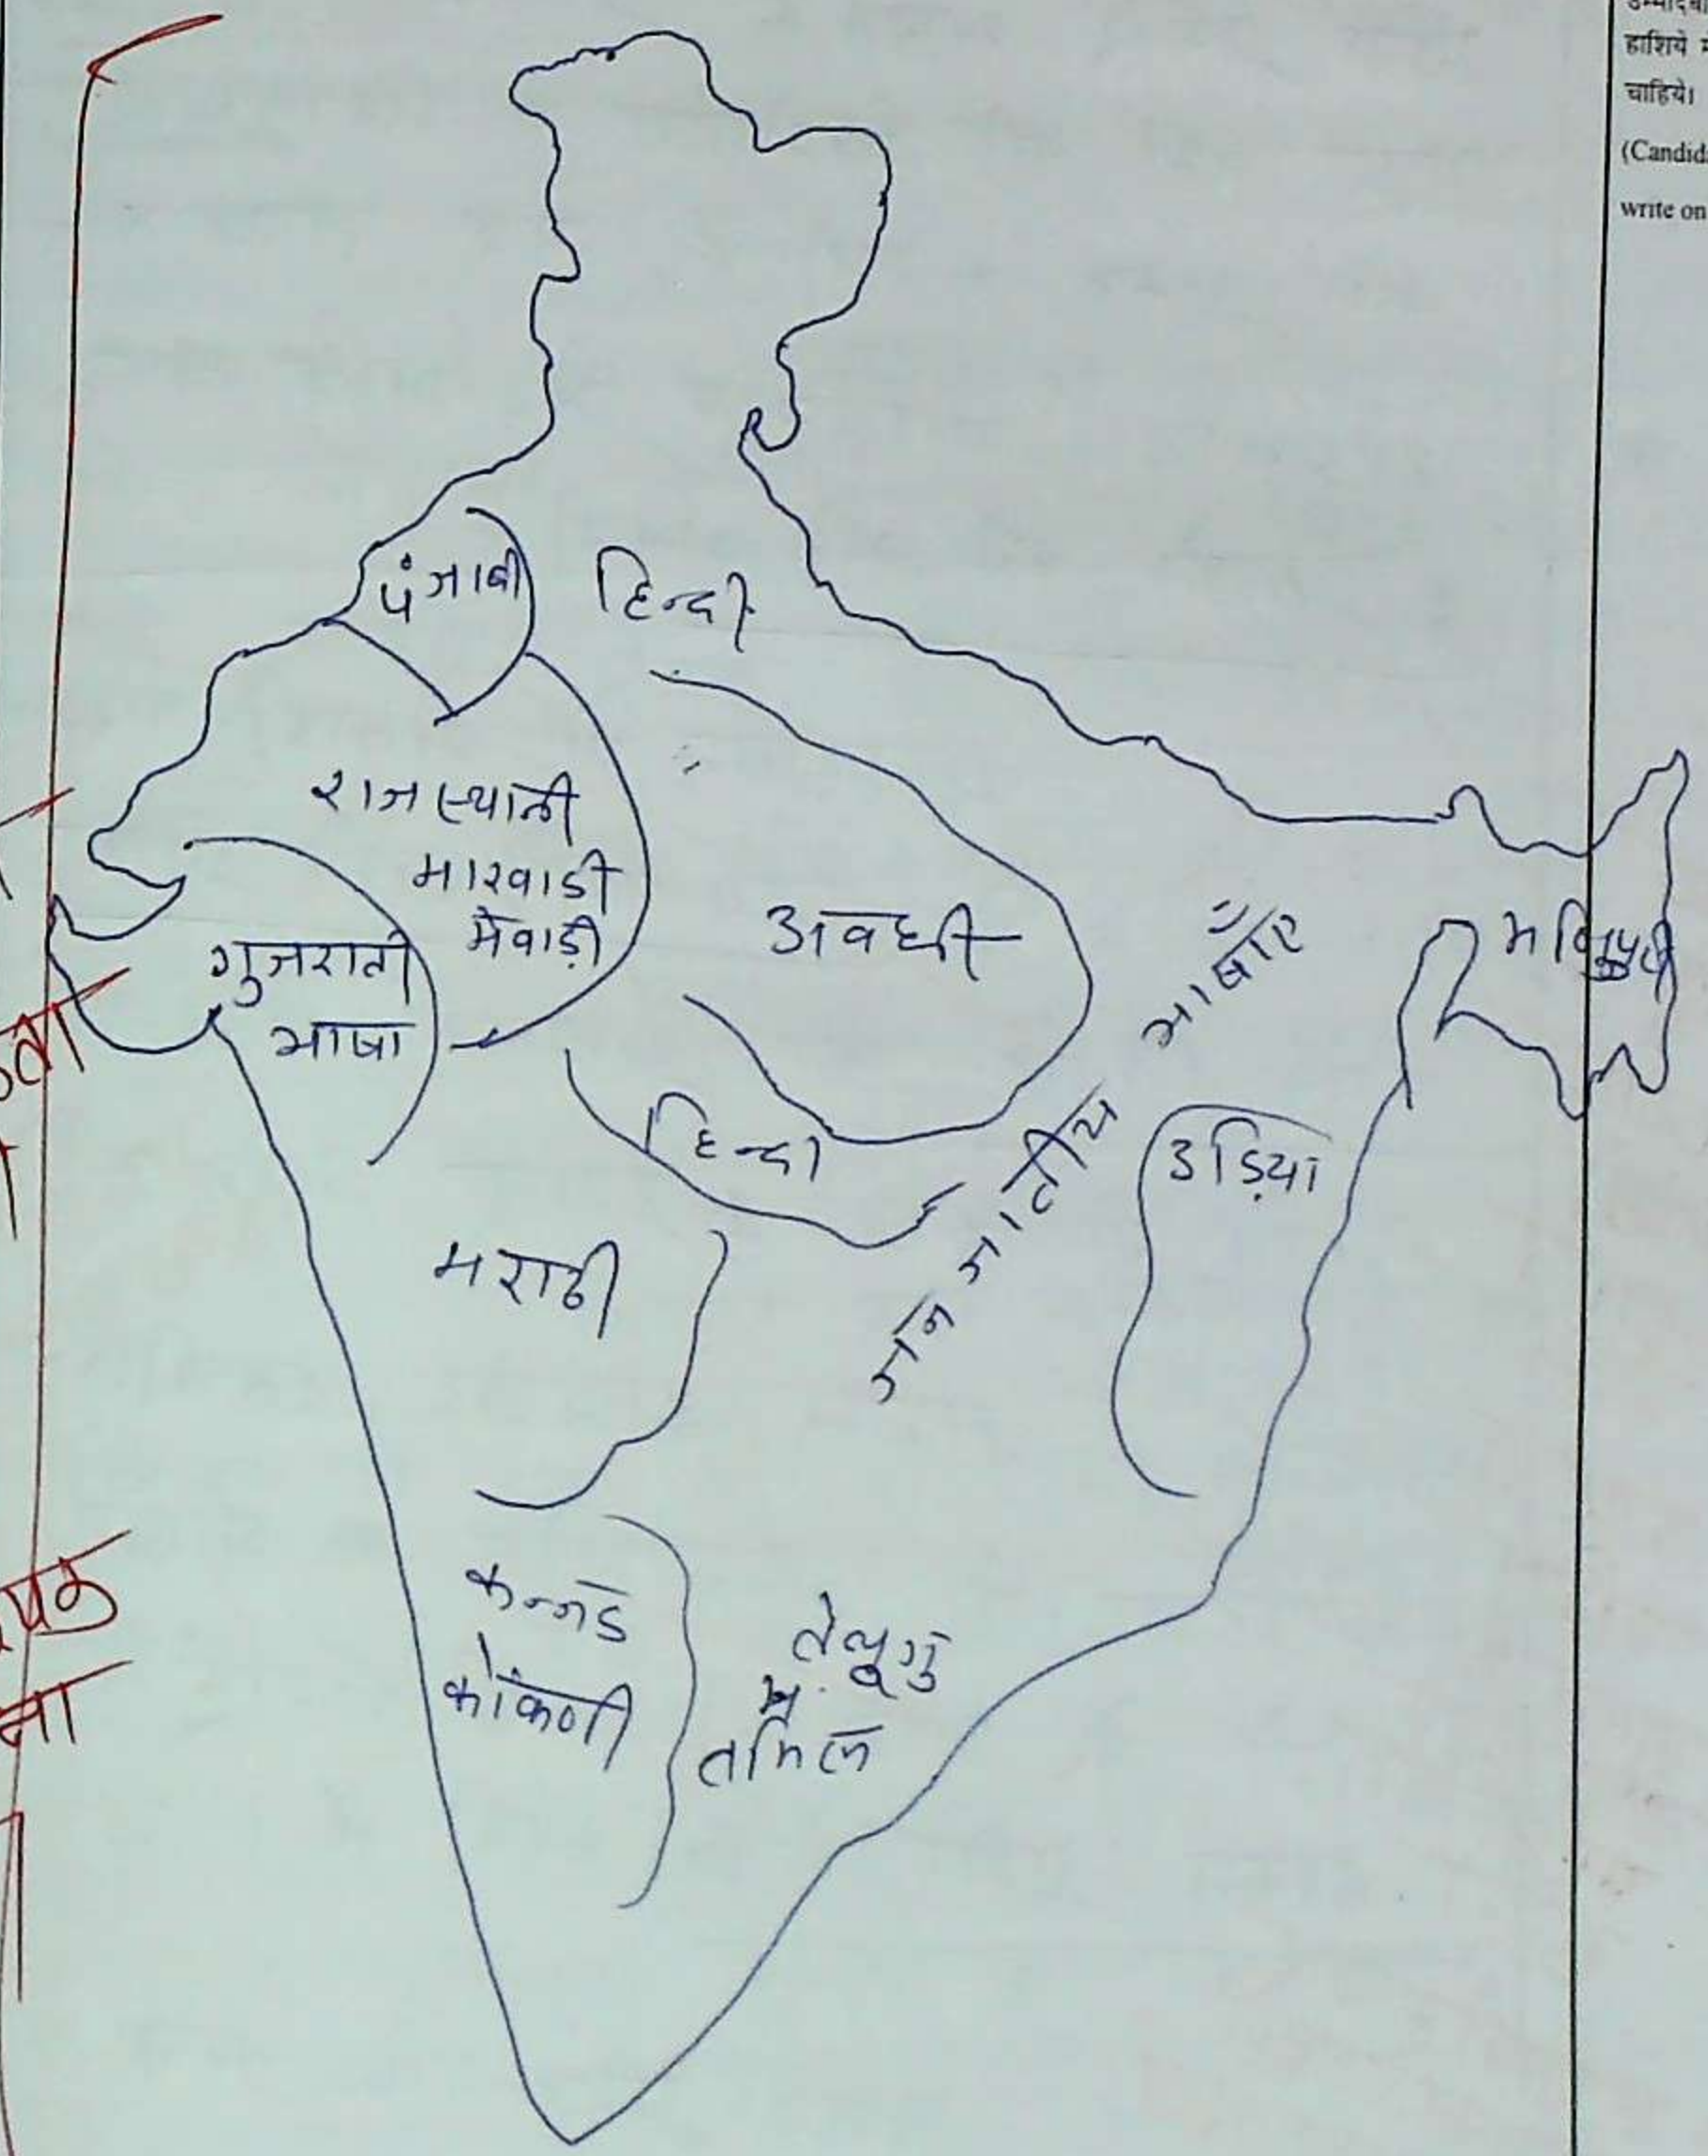 हाशिये
चाहिये।
(Candid
write on
पंजाबी
हिन्दी
राजस्थानी
मारवाडी
मेवाड़ी
गुजराती
भाषा
अवधी
जनजातीय भाषाएँ
मणिपुरी
हिन्दी
उड़िया
मराठी
कन्नड
कोंकणी
तेलूगु
तमिल